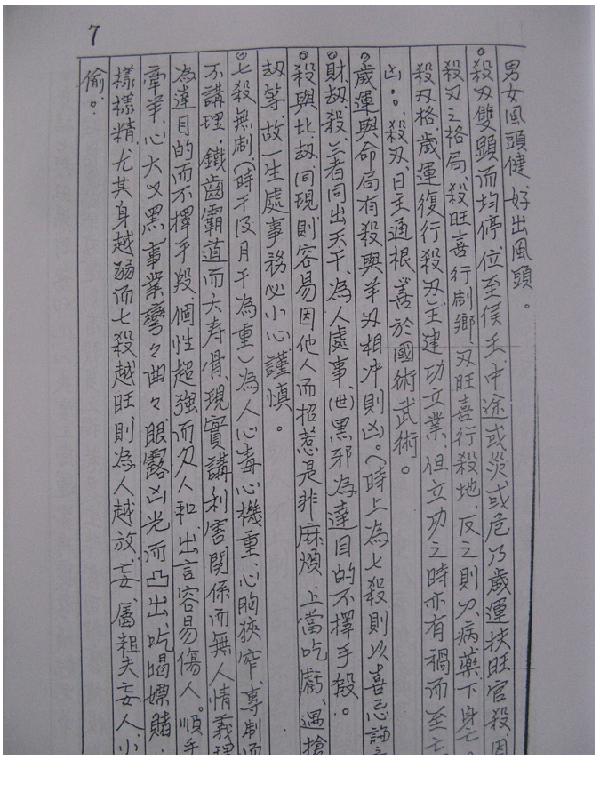 7
男女風頭健好出風頭。
。殺刃雙顯而均停，位至侯王，中途或災或危乃歲運扶旺官殺，因
殺刃之格局，殺旺喜行制鄉，刃旺喜行殺地，反之則為病藥下身亡。
殺刃格，歲運復行殺刃，主建功立業，但立功之時亦有禍而至亡
凶。。殺刃日主通根，善於國術武術。
。歲運與命局有殺與羊刃相冲則凶。（時上為七殺則以喜忌論之
。財劫殺三者同出天干，為人處事（世）黑邪為達目的不擇手段。
。殺與比劫同現則容易因他人而招惹是非麻煩，上當吃虧，遇搶
劫等，故一生處事務必小心謹慎。
。七殺無制，（時干及月干為重）為人心毒心機重，心胸狹窄，專制而
不講理，鐵齒霸道而大壽骨，現實講利害關係而無人情義理
為達目的而不擇手段，個性超強而欠人和，出言容易傷人。順手
牽羊，心大又黑，事業彎々曲々，眼露凶光而凸出，吃喝嫖賭，
樣樣精，尤其身越弱而七殺越旺則為人越放妄，屬粗夫妄人，小
偷。。